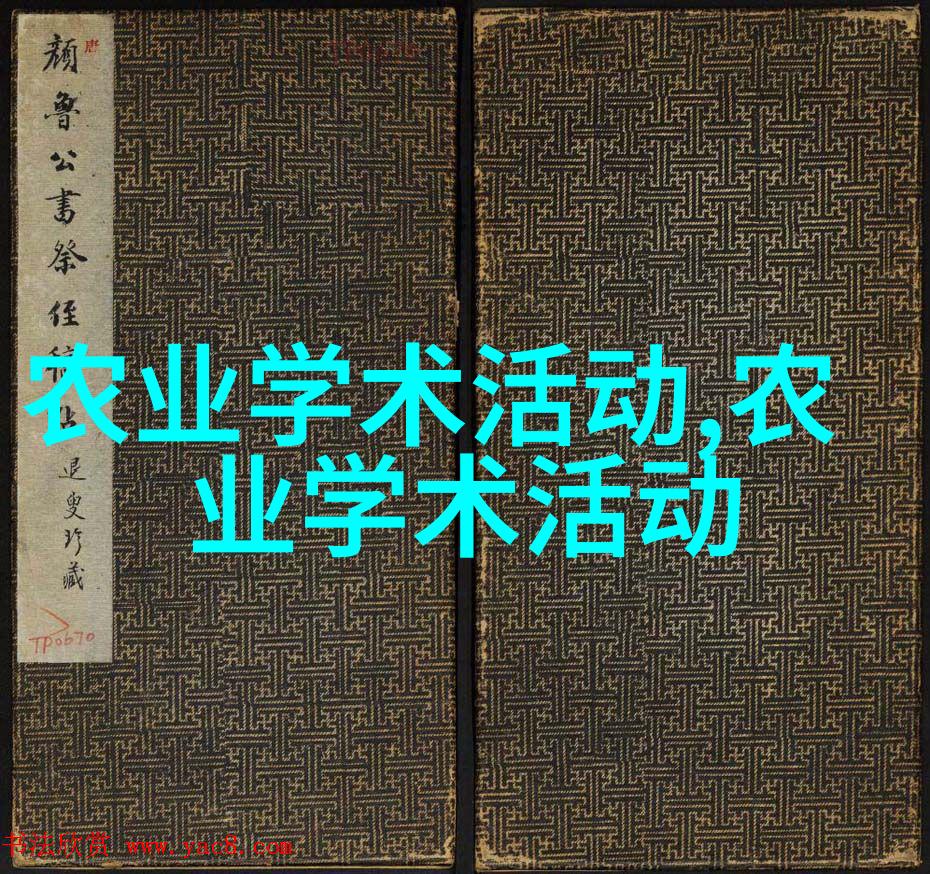 唐
颜鲁公书祭侄稿
退叟珍藏
TP0070
农业学术活动,农
业学术活动
书法欣赏 www.yac8.com